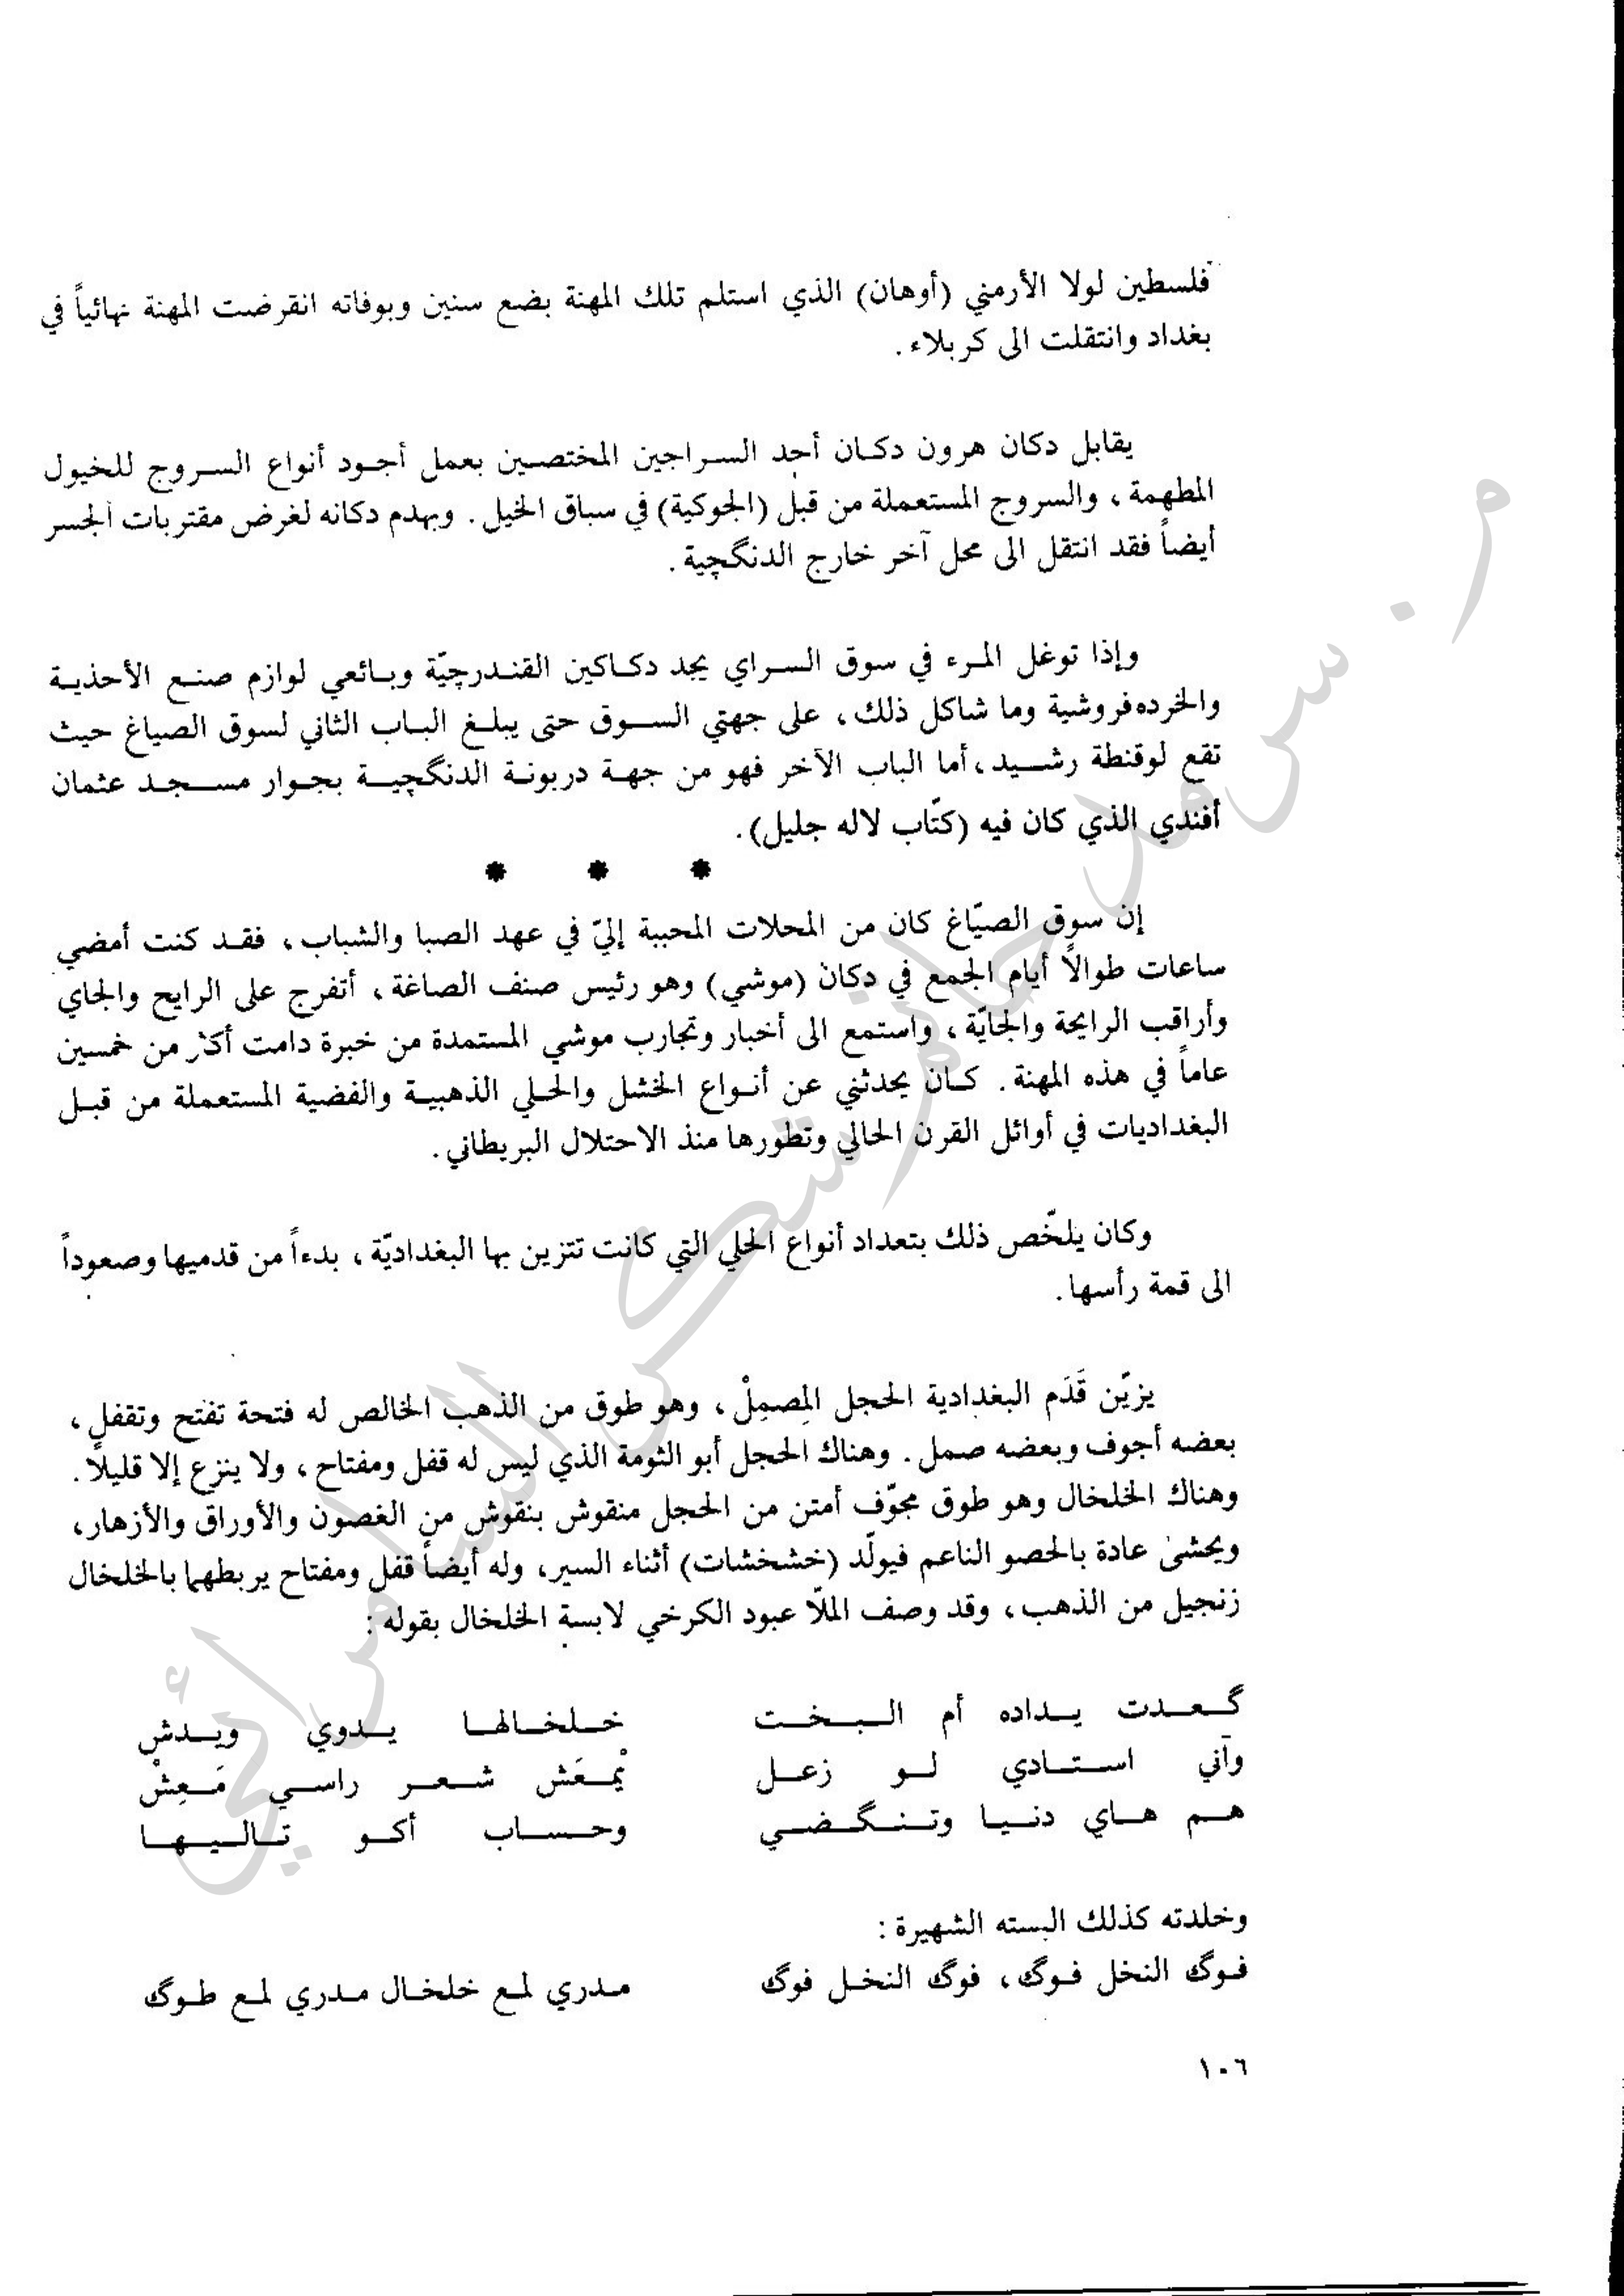 فلسطين لولا الأرمني (أوهان) الذي استلم تلك المهنة بضع سنين وبوفاته انقرضت المهنة نهائياً في
بغداد وانتقلت الى كربلاء .
يقابل دكان هرون دكان أحد السراجين المختصين بعمل أجود أنواع السروج للخيول
المطهمة ، والسروج المستعملة من قبل (الجوكية) في سباق الخيل . وبهدم دكانه لغرض مقتربات الجسر
أيضاً فقد انتقل الى محل آخر خارج الدنگچية .
وإذا توغل المرء في سوق السراي يجد دكاكين القندرچيّة وبائعي لوازم صنع الأحذية
والخرده فروشية وما شاكل ذلك ، على جهتي السوق حتى يبلغ الباب الثاني لسوق الصياغ حيث
تقع لوقنطة رشيد ، أما الباب الآخر فهو من جهة دربونة الدنگچية بجوار مسجد عثمان
أفندي الذي كان فيه (كتّاب لاله جليل) .
* * *
إن سوق الصيّاغ كان من المحلات المحببة إليّ في عهد الصبا والشباب ، فقد كنت أمضي
ساعات طوالاً أيام الجمع في دكان (موشي) وهو رئيس صنف الصاغة ، أتفرج على الرايح والجاي
وأراقب الرايحة والجايّة ، واستمع الى أخبار وتجارب موشي المستمدة من خبرة دامت أكثر من خمسين
عاماً في هذه المهنة . كان يحدثني عن أنواع الخشل والحلي الذهبية والفضية المستعملة من قبل
البغداديات في أوائل القرن الحالي وتطورها منذ الاحتلال البريطاني .
وكان يلخّص ذلك بتعداد أنواع الحلي التي كانت تتزين بها البغداديّة ، بدءاً من قدميها وصعوداً
الى قمة رأسها .
يزيّن قَدَم البغدادية الحجل المِصمِلْ ، وهو طوق من الذهب الخالص له فتحة تفتح وتقفل ،
بعضه أجوف وبعضه صمل . وهناك الحجل أبو الثومة الذي ليس له قفل ومفتاح ، ولا ينزع إلا قليلاً .
وهناك الخلخال وهو طوق مجوّف أمتن من الحجل منقوش بنقوش من الغصون والأوراق والأزهار ،
ويحشى عادة بالحصو الناعم فيولّد (خشخشات) أثناء السير ، وله أيضاً قفل ومفتاح يربطهما بالخلخال
زنجيل من الذهب ، وقد وصف الملّا عبود الكرخي لابسة الخلخال بقوله :
گعدت يداده أم البخت خلخالها يدوي ويدش
وآني استادي لو زعل يْمعَش شعر راسي مَعِشْ
هم هاي دنيا وتنگضي وحساب أكو تاليها
وخلدته كذلك البسته الشهيرة :
فوگ النخل فوگ ، فوگ النخل فوگ مدري لمع خلخال مدري لمع طوگ
١٠٦
م. سرمد حاتم شكر السامرائي